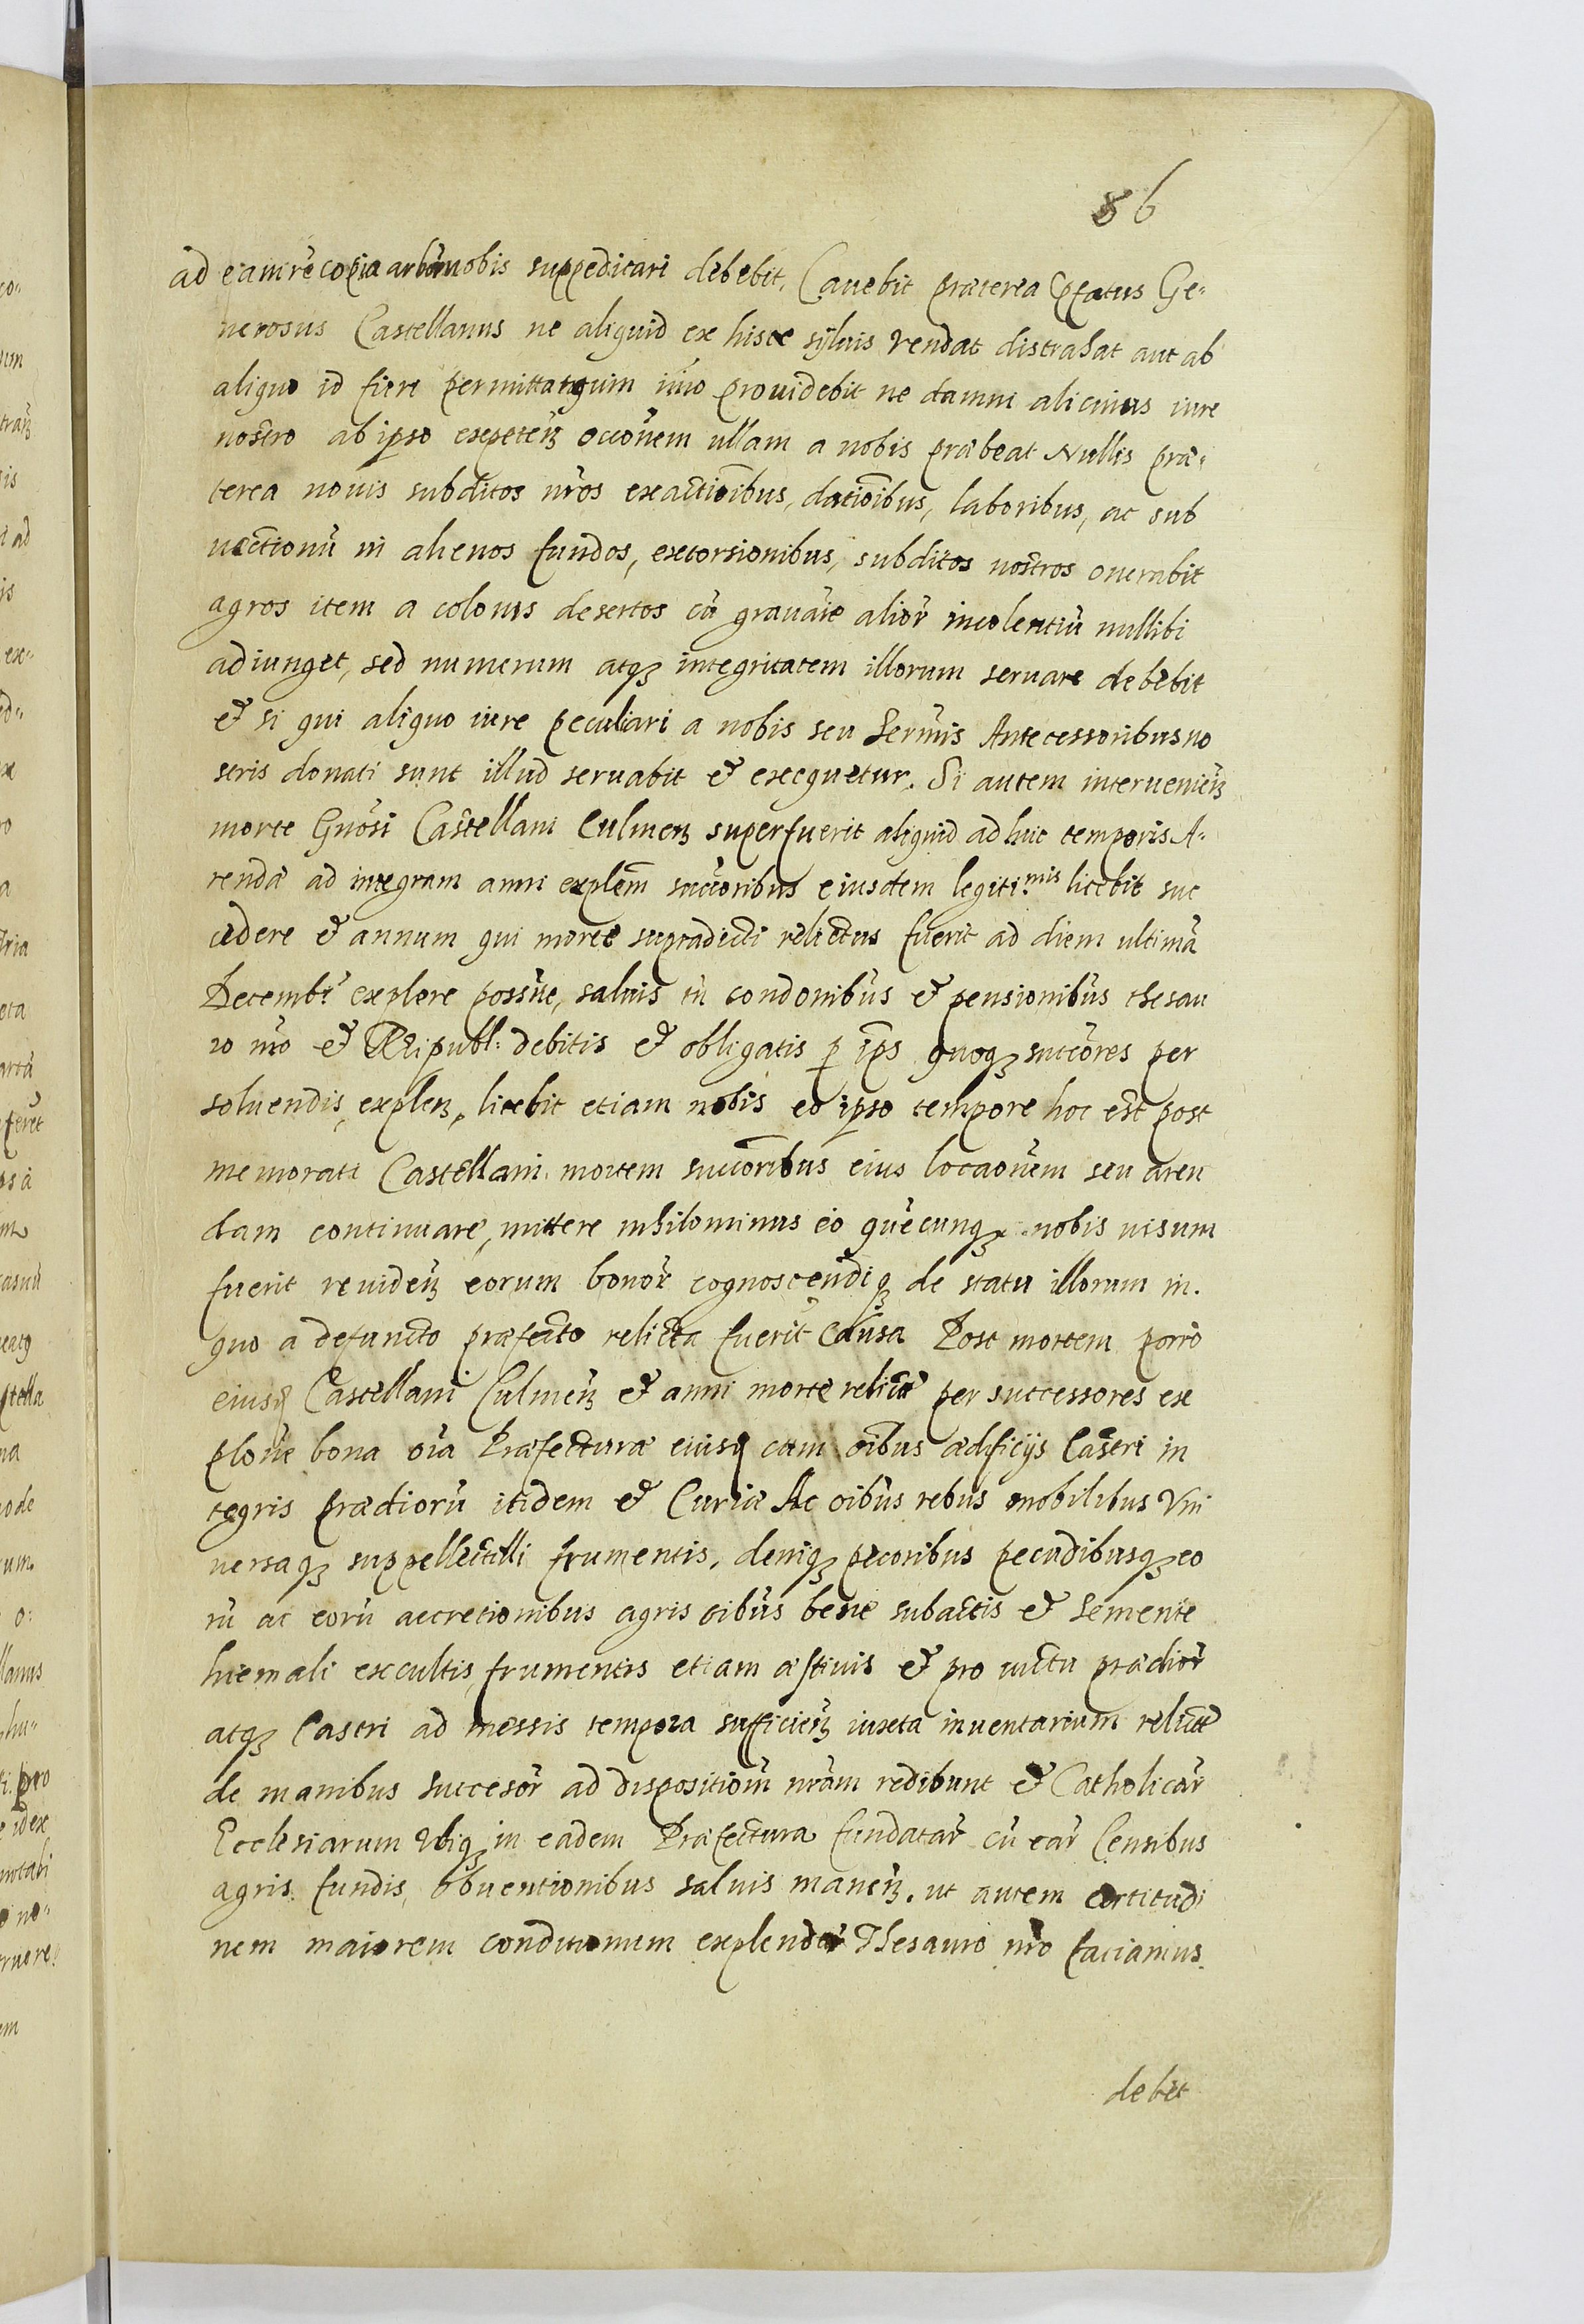 86
ad eam rē copia arborū nobis suppeditari debebit, Cavebit præterea Pfatus Ge-
nerosus Castellanus ne aliquid ex hisce sylvis vendat distrahat aut ab
aliquo id fieri permittat quin imo providebit ne damni alicuius iure
nostro ab ipso expeteñ occōnem ullam a nobis præbeat Nullis præ-
terea novis subditos nros exactiōibus, datiōibus, laboribus, ac sub
vectionū in alienos fundos, extorsionibus, subditos nostros onerabit
agros item a colonis desertos cū gravaīe alior̄ incolentiū nullibi
adiunget, sed numerum atqȝ integritatem illorum servare debebit
et si qui aliquo iure peculiari a nobis seu Sermis Antecessoribus no
stris donati sunt illud servabit et exequetur. Si autem intervenieñ
morte Gnosi Castellani Culmeñ superfuerit aliquid adhuc temporis A-
rendæ ad integram anni explem̄ succoribus eiusdem legitimis licebit suc
cedere et annum qui morte supradicti relictus fuerit ad diem ultimā
Decembr̄ explere possūt, salvis tn̄ condonibus et pensionibus thesau
ro nr̄o et Reipubl: debitis et obligatis p ip̄s quoqȝ succōres per
solvendis, expleñ, licebit etiam nobis eo ipso tempore hoc est post
memorati Castellani mortem succoribus eius locaōnem seu aren
dam continuare, mittere nihilominus eo quēcunqȝ nobis visum
fuerit revideñ eorum bonor̄ cognoscendiqȝ de statu illorum in
quo a defuncto præfecto relicta fuerit causa Post mortem porro
eiusd Castellani Culmeñ et anni morte relictæ per successores ex
plōne bona oīa Præfecturæ eiusd cum oībus ædificijs Castri in
tegris Prædiorū itidem et Curiæ Ac oībus rebus mobilibus Vni
versaqȝ suppellectilli frumentis, deniqȝ pecoribus pecudibusqȝ eo
rū ac eorū accretionibus agris oībus bene subactis et semente
hiemali excultis, frumentis etiam æstivis et pro victu prædior̄
atqȝ Castri ad messis tempora sufficieñ iuxta inventarium relictæ
de manibus succesor̄ ad dispositiōm nrām redibunt et Catholicar̄
Ecclesiarum Vbiqȝ in eadem Præfectura fundatar̄ cū ear̄ Censibus
agris fundis, obventionibus salvis maneñ. ut autem certitudi
nem maiorem conditionum explendar̄ Thesauro nr̄o faciamus
debet